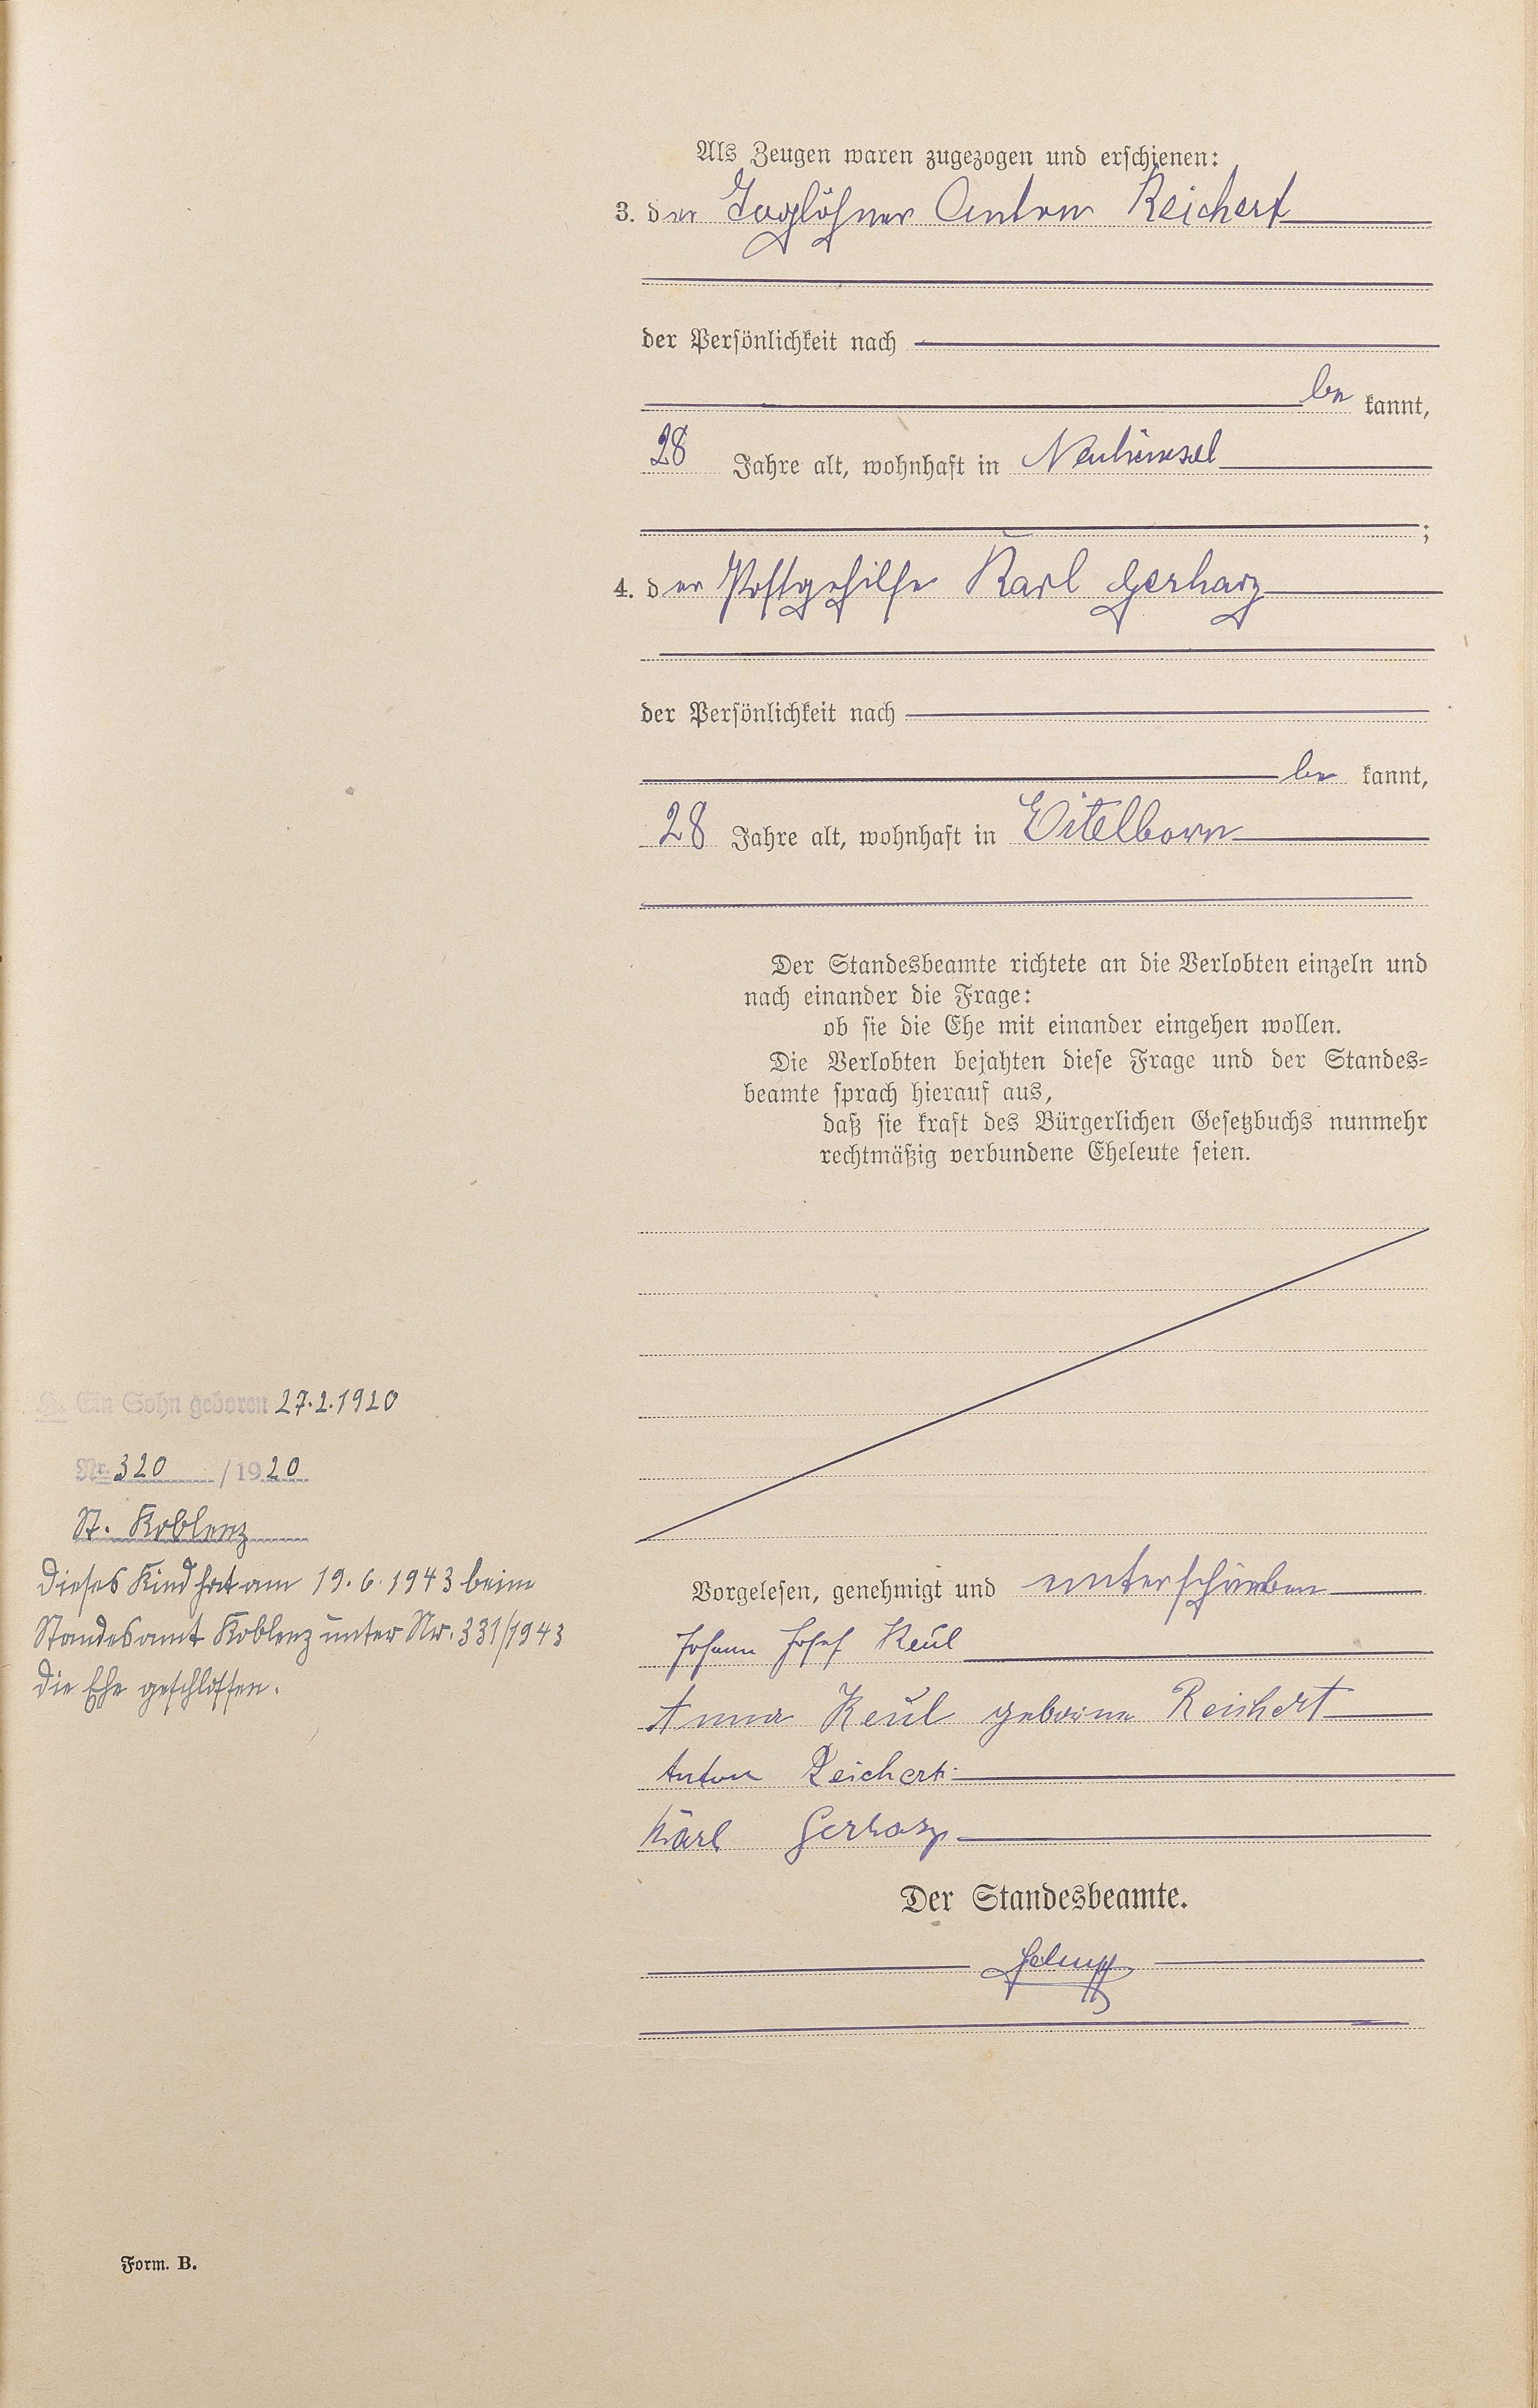 Als Zeugen waren zugezogen und erschienen:
3. der Taglöhner Anton Reichert
der Persönlichkeit nach
be kannt,
28 Jahre alt, wohnhaft in Neuhäusel
;
4. der Postgehilfe Karl Gerharz
der Persönlichkeit nach
be kannt,
28 Jahre alt, wohnhaft in Eitelborn
Der Standesbeamte richtete an die Verlobten einzeln und
nach einander die Frage:
ob sie die Ehe mit einander eingehen wollen.
Die Verlobten bejahten diese Frage und der Standes=
beamte sprach hierauf aus,
daß sie kraft des Bürgerlichen Gesetzbuchs nunmehr
rechtmäßig verbundene Eheleute seien.
Ein Sohn geboren 27.2.1920
Nr. 320 / 1920
St. Koblenz
Dieses Kind hat am 19.6.1943 beim
Standesamt Koblenz unter Nr. 331/1943
die Ehe geschlossen.
Vorgelesen, genehmigt und unterschrieben
Johann Josef Keul
Anna Keul geborene Reichert
Anton Reichert
Karl Gerharz
Der Standesbeamte.
Form. B.